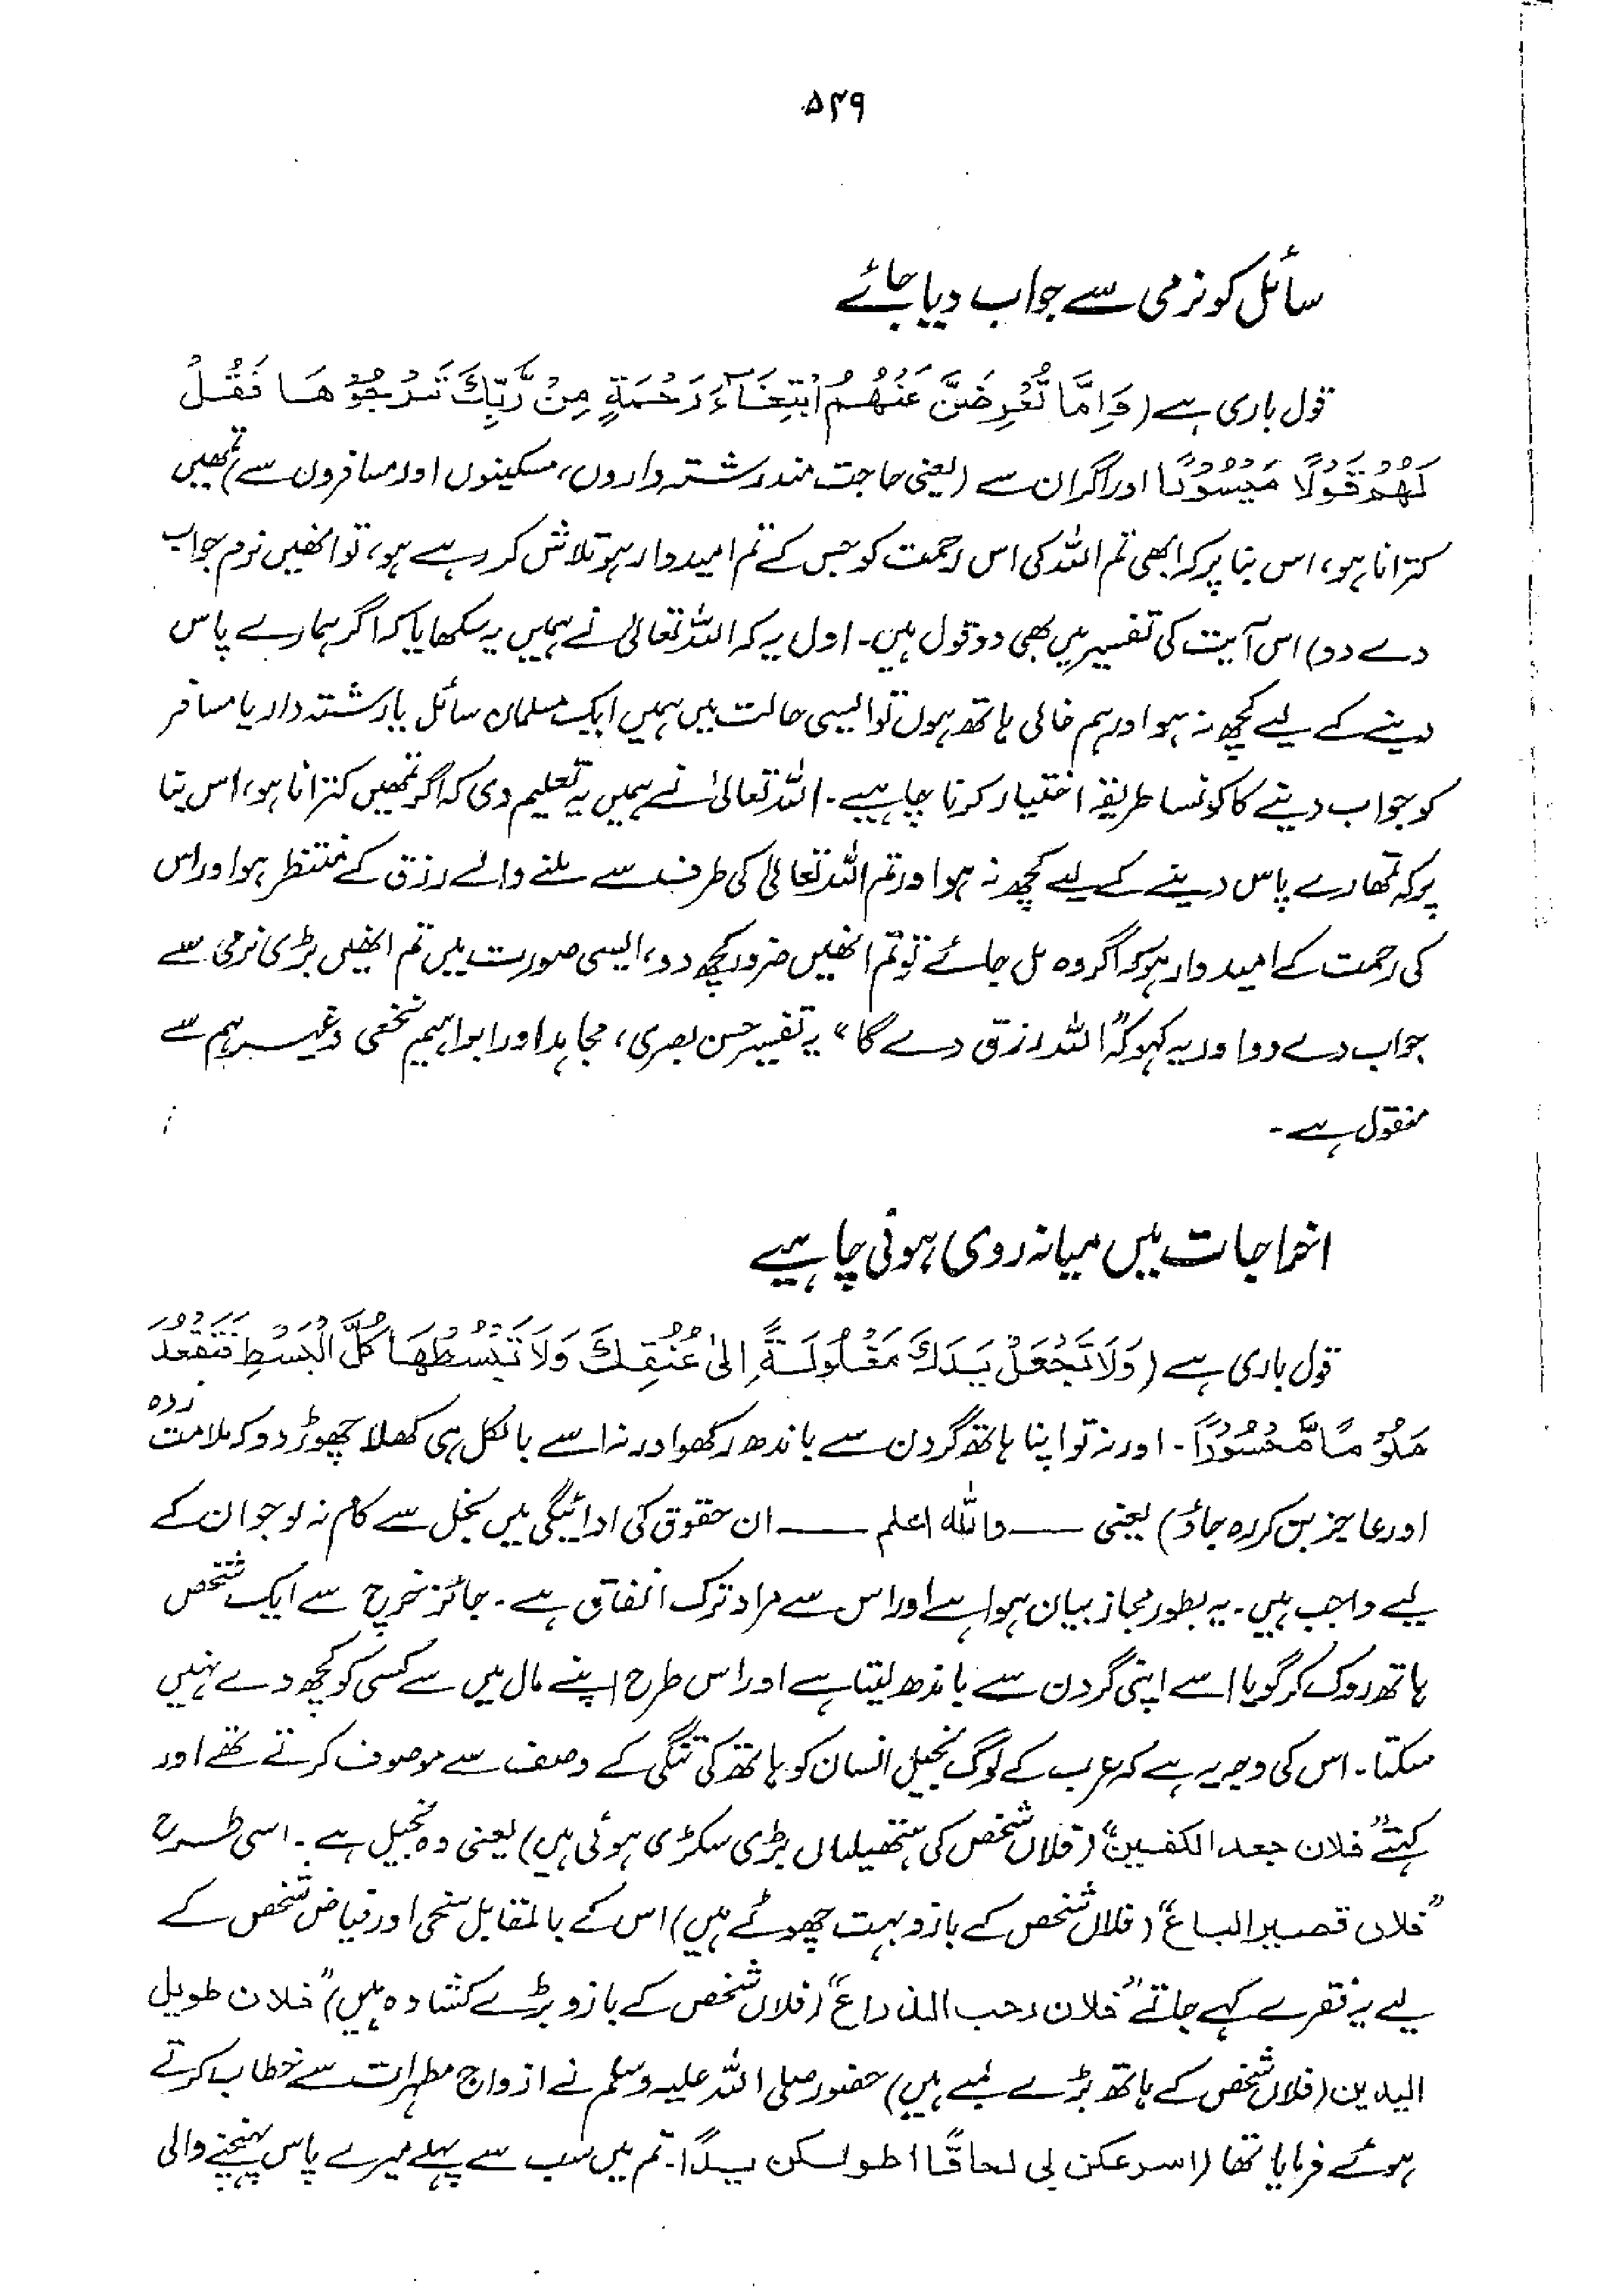 ۵۴۹
سائل کو نرمی سے جواب دیا جائے
قول باری ہے (وَاِمَّا تُعْرِضَنَّ عَنْهُمُ ابْتِغَآءَ رَحْمَةٍ مِنْ رَّبِّكَ تَرْجُوْهَا فَقُلْ
لَهُمْ قَوْلًا مَيْسُوْرًا اور اگر ان سے (یعنی حاجت مند رشتہ داروں، مسکینوں اور مسافروں سے) تمھیں
کترانا ہو، اس بنا پر کہ ابھی تم اللہ کی اس رحمت کو جس کے تم امیدوار ہو تلاش کر رہے ہو، تو انھیں نرم جواب
دے دو) اس آیت کی تفسیر میں بھی دو قول ہیں۔ اول یہ کہ اللہ تعالیٰ نے ہمیں یہ سکھایا کہ اگر ہمارے پاس
دینے کے لیے کچھ نہ ہو اور ہم خالی ہاتھ ہوں تو ایسی حالت میں ہمیں ایک مسلمان سائل یا رشتہ دار یا مسافر
کو جواب دینے کا کونسا طریقہ اختیار کرنا چاہیے۔ اللہ تعالیٰ نے ہمیں یہ تعلیم دی کہ اگر تمھیں کترانا ہو، اس بنا
پر کہ تمھارے پاس دینے کے لیے کچھ نہ ہو اور تم اللہ تعالیٰ کی طرف سے ملنے والے رزق کے منتظر ہو اور اس
کی رحمت کے امیدوار ہو کہ اگر وہ مل جائے تو تم انھیں ضرور کچھ دو، ایسی صورت میں تم انھیں بڑی نرمی سے
جواب دے دو اور یہ کہو کہ "اللہ رزق دے گا" یہ تفسیر حسن بصری، مجاہد اور ابراہیم نخعی وغیرہم سے
منقول ہے۔
اخراجات میں میانہ روی ہونی چاہیے
قول باری ہے (وَلَا تَجْعَلْ يَدَكَ مَغْلُوْلَةً اِلٰى عُنُقِكَ وَلَا تَبْسُطْهَا كُلَّ الْبَسْطِ فَتَقْعُدَ
مَلُوْمًا مَّحْسُوْرًا۔ اور نہ تو اپنا ہاتھ گردن سے باندھ رکھو اور نہ اسے بالکل ہی کھلا چھوڑ دو کہ ملامت زدہ
اور عاجز بن کر رہ جاؤ) یعنی —— واللہ اعلم —— ان حقوق کی ادائیگی میں بخل سے کام نہ لو جو ان کے
لیے واجب ہیں۔ یہ بطور مجاز بیان ہوا ہے اور اس سے مراد ترک انفاق ہے۔ جائز خرچ سے ایک شخص
ہاتھ روک کر گویا اسے اپنی گردن سے باندھ لیتا ہے اور اس طرح اپنے مال میں سے کسی کو کچھ دے نہیں
سکتا۔ اس کی وجہ یہ ہے کہ عرب کے لوگ بخیل انسان کو ہاتھ کی تنگی کے وصف سے موصوف کرتے تھے اور
کہتے "فلان جعد الکفین" (فلاں شخص کی ہتھیلیاں بڑی سکڑی ہوئی ہیں) یعنی وہ بخیل ہے۔ اسی طرح
"فلان قصیر الباع" (فلاں شخص کے بازو بہت چھوٹے ہیں) اس کے بالمقابل سخی اور فیاض شخص کے
لیے یہ فقرے کہے جاتے "فلان رحب الذراع" (فلاں شخص کے بازو بڑے کشادہ ہیں) "فلان طویل
الیدین (فلاں شخص کے ہاتھ بڑے لمبے ہیں) حضور صلی اللہ علیہ وسلم نے ازواج مطہرات سے خطاب کرتے
ہوئے فرمایا تھا (اسرعکن بی لحاقًا اطولکن یدًا۔ تم میں سب سے پہلے میرے پاس پہنچنے والی